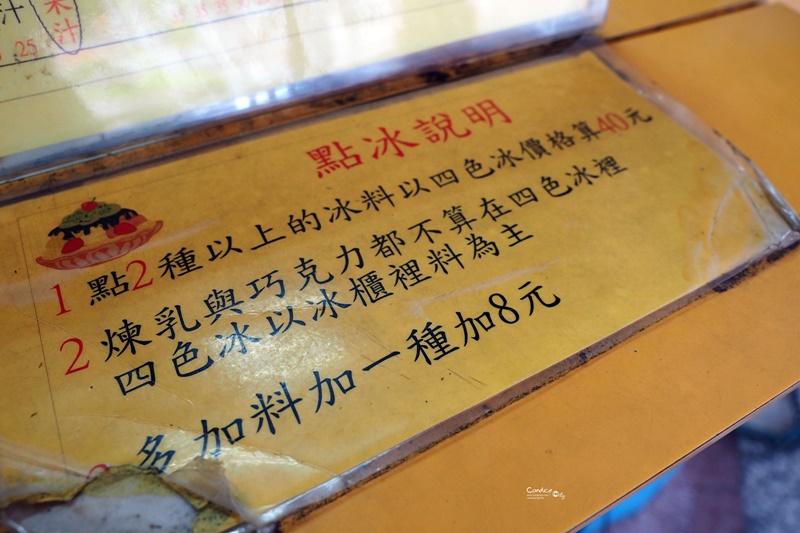 汁
果汁
25
點冰說明
1 點2種以上的冰料以四色冰價格算40元
2 煉乳與巧克力都不算在四色冰裡
四色冰以冰櫃裡料為主
多加料加一種加8元